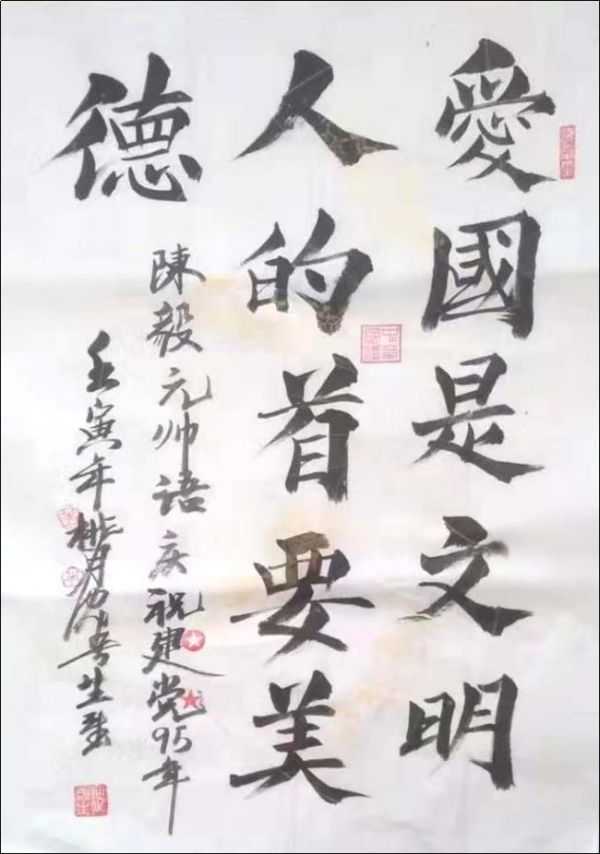 愛國是文明
人的首要美
德
陳毅元帅语庆祝建党95年
壬寅年桃月
生书